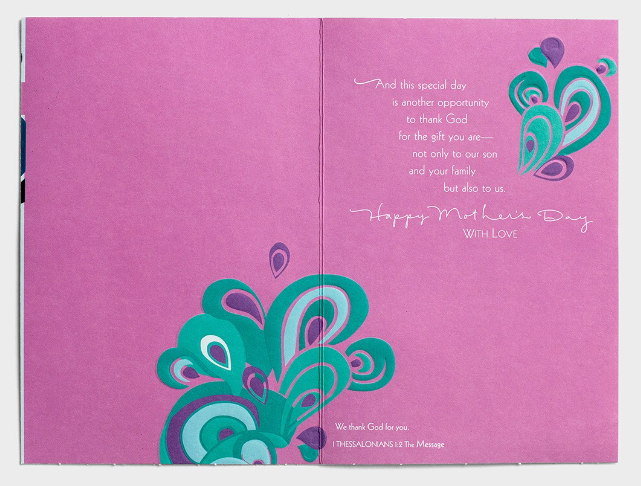 And this special day
is another opportunity
to thank God
for the gift you are—
not only to our son
and your family
but also to us.
Happy Mother's Day
WITH LOVE
We thank God for you.
1 THESSALONIANS 1:2 The Message